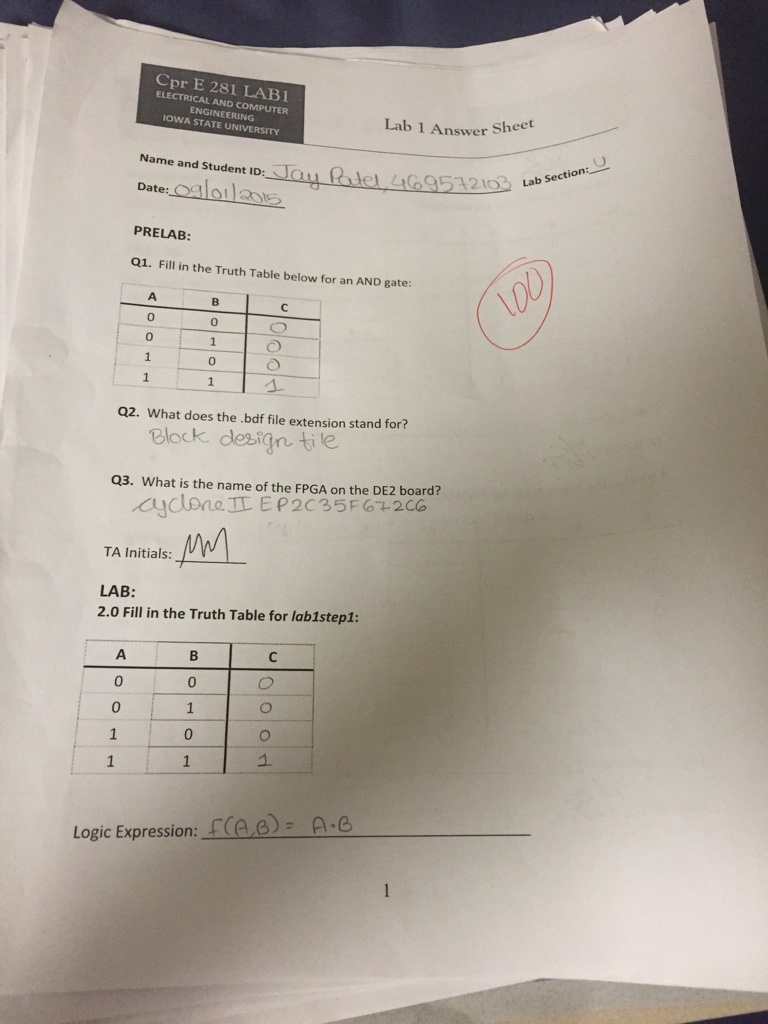 Cpr E 281 LAB1
ELECTRICAL AND COMPUTER
ENGINEERING
IOWA STATE UNIVERSITY
Lab 1 Answer Sheet
Name and Student ID: Jay Patel, 469572103 Lab Section: U
Date: 09/01/2015
PRELAB:
Q1. Fill in the Truth Table below for an AND gate:
100
A B C
0 0 0
0 1 0
1 0 0
1 1 1
Q2. What does the .bdf file extension stand for?
Block design file
Q3. What is the name of the FPGA on the DE2 board?
cyclone II EP2C35F672C6
TA Initials:
LAB:
2.0 Fill in the Truth Table for lab1step1:
A B C
0 0 0
0 1 0
1 0 0
1 1 1
Logic Expression: f(A,B) = A·B
1